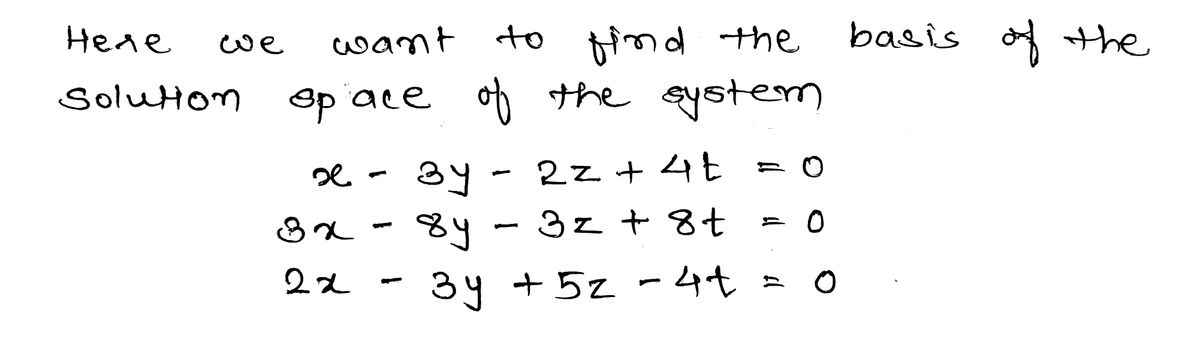 Here we want to find the basis of the
solution space of the system
x - 3y - 2z + 4t = 0
3x - 8y - 3z + 8t = 0
2x - 3y + 5z - 4t = 0